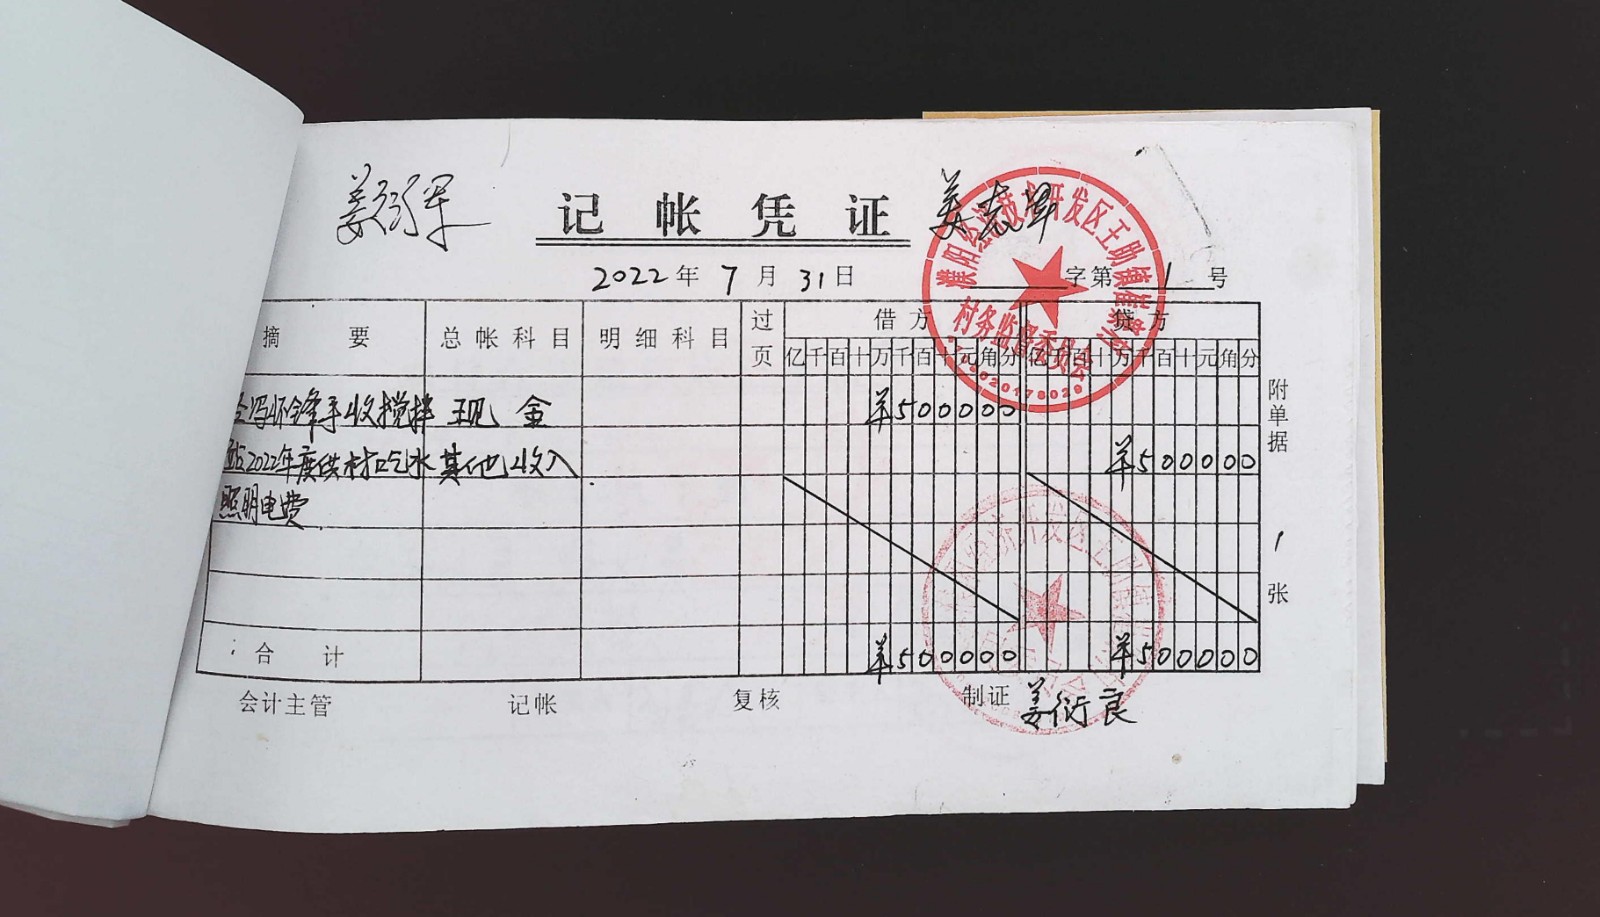 记帐凭证
2022年7月31日 字第1号
摘要 总帐科目 明细科目 过页 借方 贷方
亿千百十万千百十元角分 亿千百十万千百十元角分
手收搅拌 现金 ¥500000
站2022年度供村吃水 其他收入 ¥500000
照明电费
合计 ¥500000 ¥500000
附单据1张
会计主管 记帐 复核 制证 姜衍良
濮阳经济技术开发区王助镇
村务监督委员会